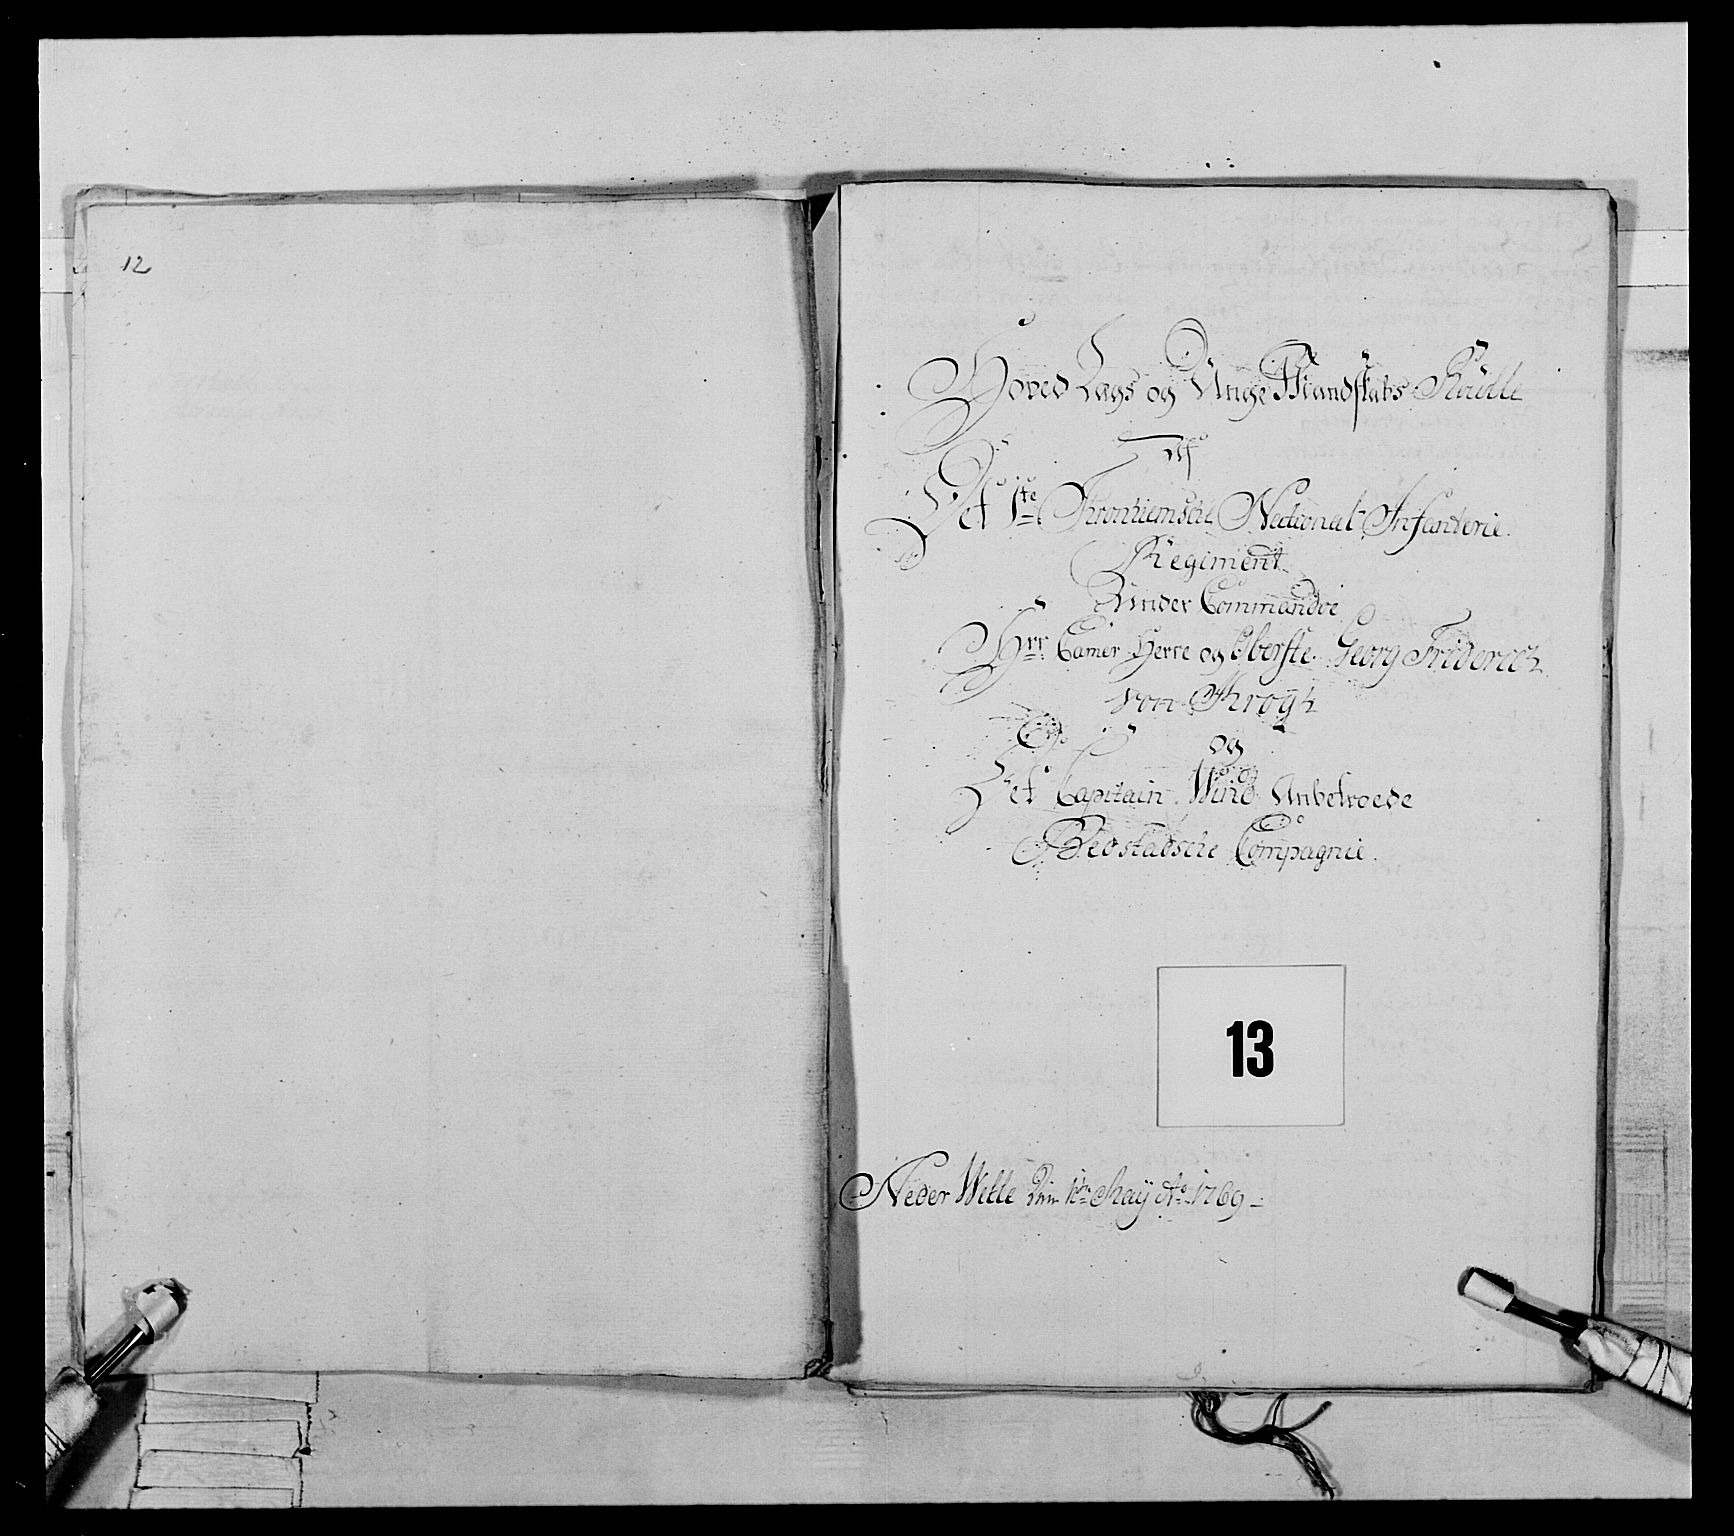 12
Hoved Lægs og Unge Mandskabs Roulle
Af
Det 1ste Tronhiemsche National Infanterie
Regiment
Under Commandoe
Hrr Camer Herre og Oberste Georg Friderich
von Krogh
og
Det Capitain Wind Anbetroede
Bedstadsche Compagnie.
13
Neder Wette Den 1te May Ao 1769